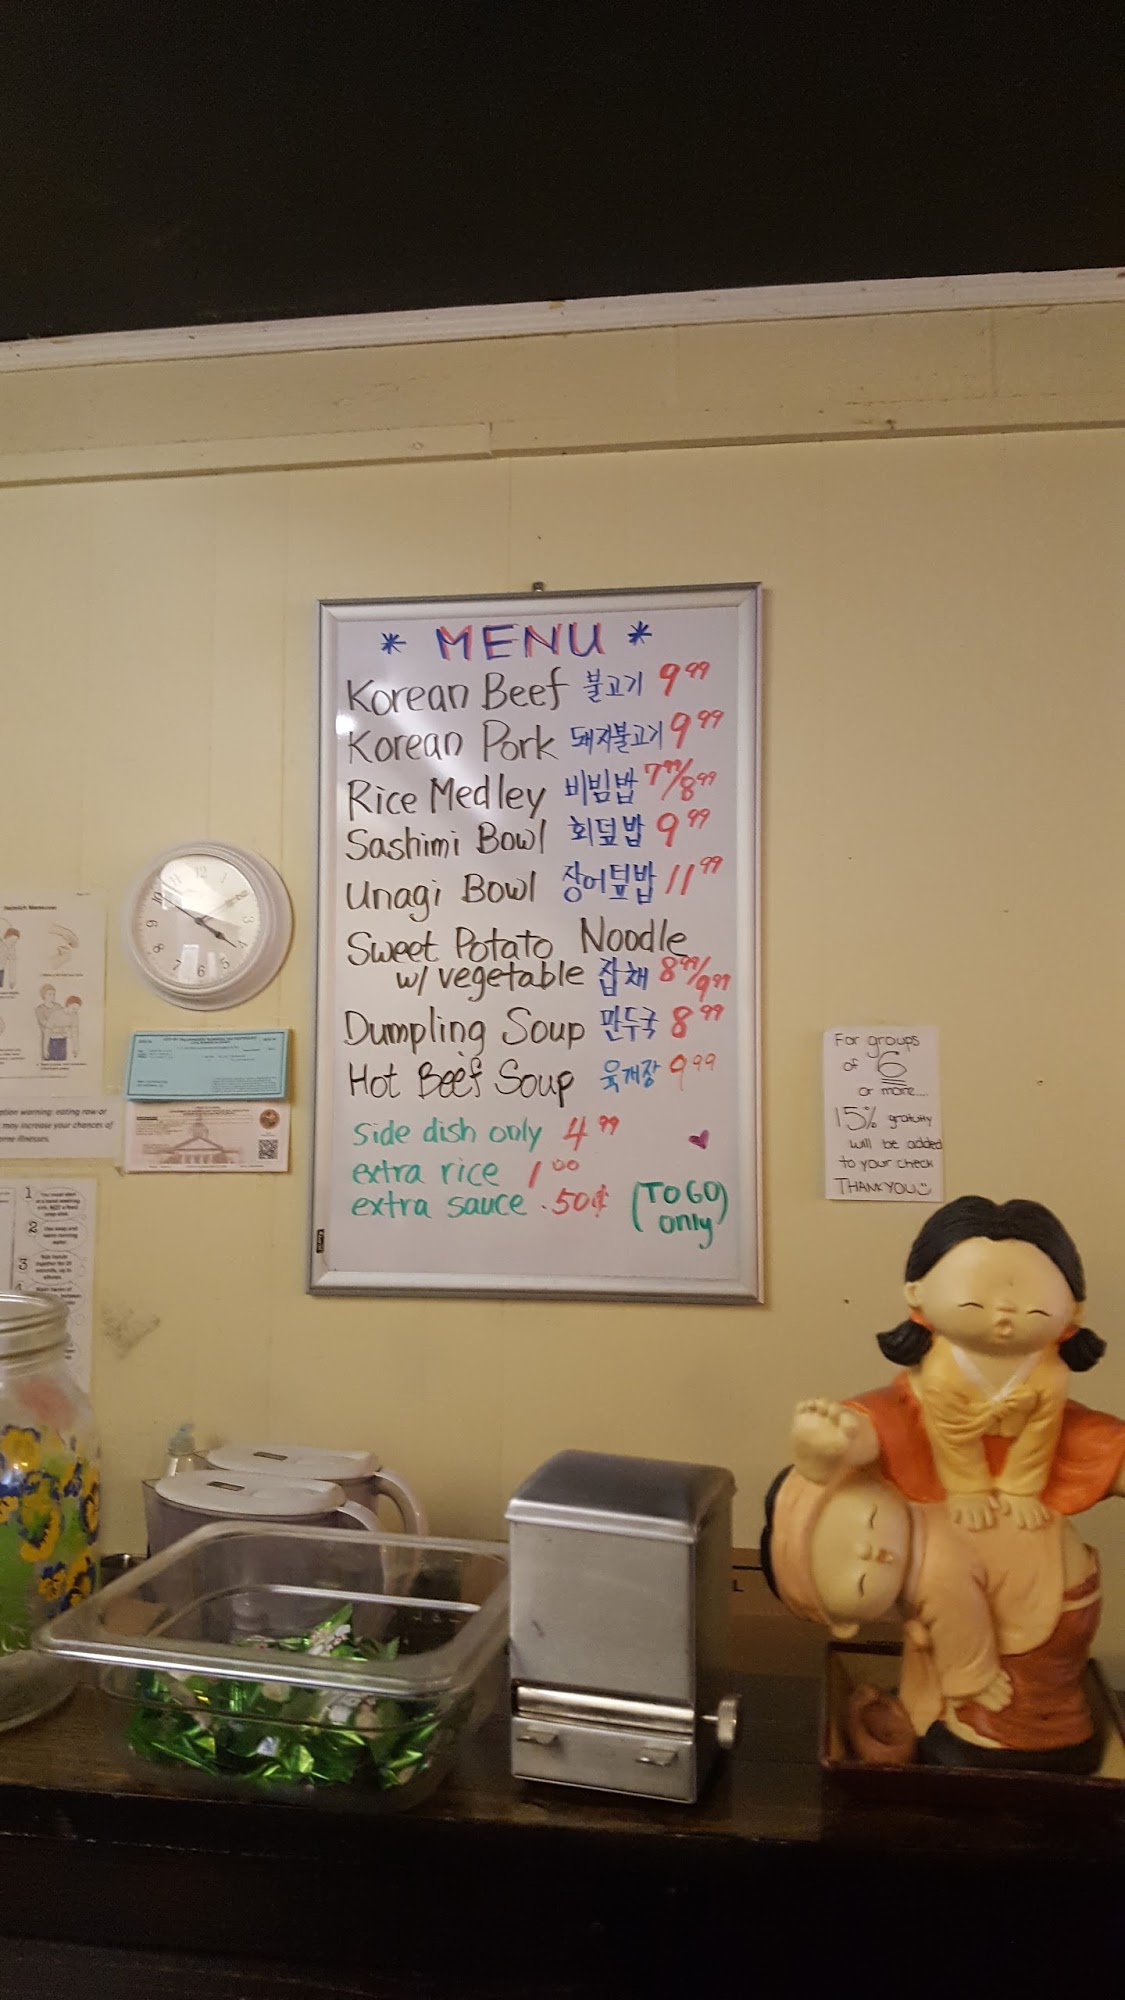 * MENU *
Korean Beef 불고기 9.99
Korean Pork 돼지불고기 9.99
Rice Medley 비빔밥 7.99/8.99
Sashimi Bowl 회덮밥 9.99
Unagi Bowl 장어덮밥 11.99
Sweet Potato Noodle
w/ vegetable 잡채 8.99/9.99
Dumpling Soup 만두국 8.99
Hot Beef Soup 육개장 9.99
side dish only 4.99
extra rice 1.00
extra sauce .50¢ (TO GO only)
For groups
of 6
or more....
15% gratuity
will be added
to your check
THANK YOU
12
1
2
3
4
5
6
7
8
9
10
11
warning: eating raw or
may increase your chances of
illnesses.
1
2
3